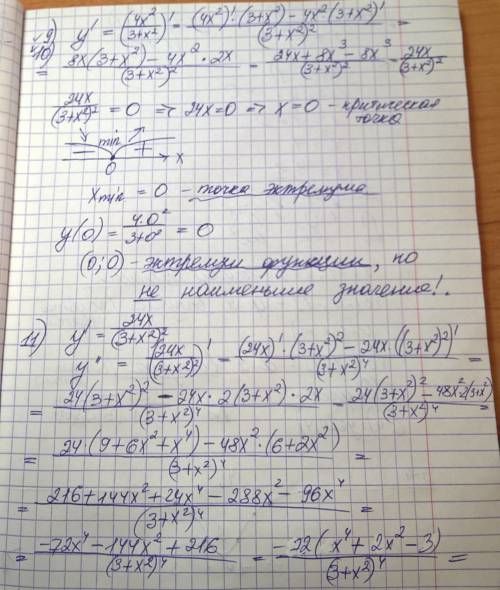 9) y' = (4x²/(3+x²))' = ((4x²)'·(3+x²) - 4x²(3+x²)')/(3+x²)² =
10) = (8x(3+x²) - 4x²·2x)/(3+x²)² = (24x + 8x³ - 8x³)/(3+x²)² = 24x/(3+x²)²
24x/(3+x²)² = 0 ⇒ 24x=0 ⇒ x=0 - критическая
точка
min
- + x
0
x min = 0 - точка экстремума
y(0) = 4·0²/(3+0²) = 0
(0;0) - экстремум функции, но
не наименьшие значения!.
11) y' = 24x/(3+x²)²
y'' = (24x/(3+x²)²)' = ((24x)'·(3+x²)² - 24x·((3+x²)²)')/(3+x²)⁴ =
= (24(3+x²)² - 24x·2(3+x²)·2x)/(3+x²)⁴ = (24(3+x²)² - 48x²·2(3+x²))/(3+x²)⁴
= (24·(9+6x²+x⁴) - 48x²·(6+2x²))/(3+x²)⁴ =
= (216+144x²+24x⁴ - 288x² - 96x⁴)/(3+x²)⁴
= (-72x⁴ - 144x² + 216)/(3+x²)⁴ = -72(x⁴+2x²-3)/(3+x²)⁴ =